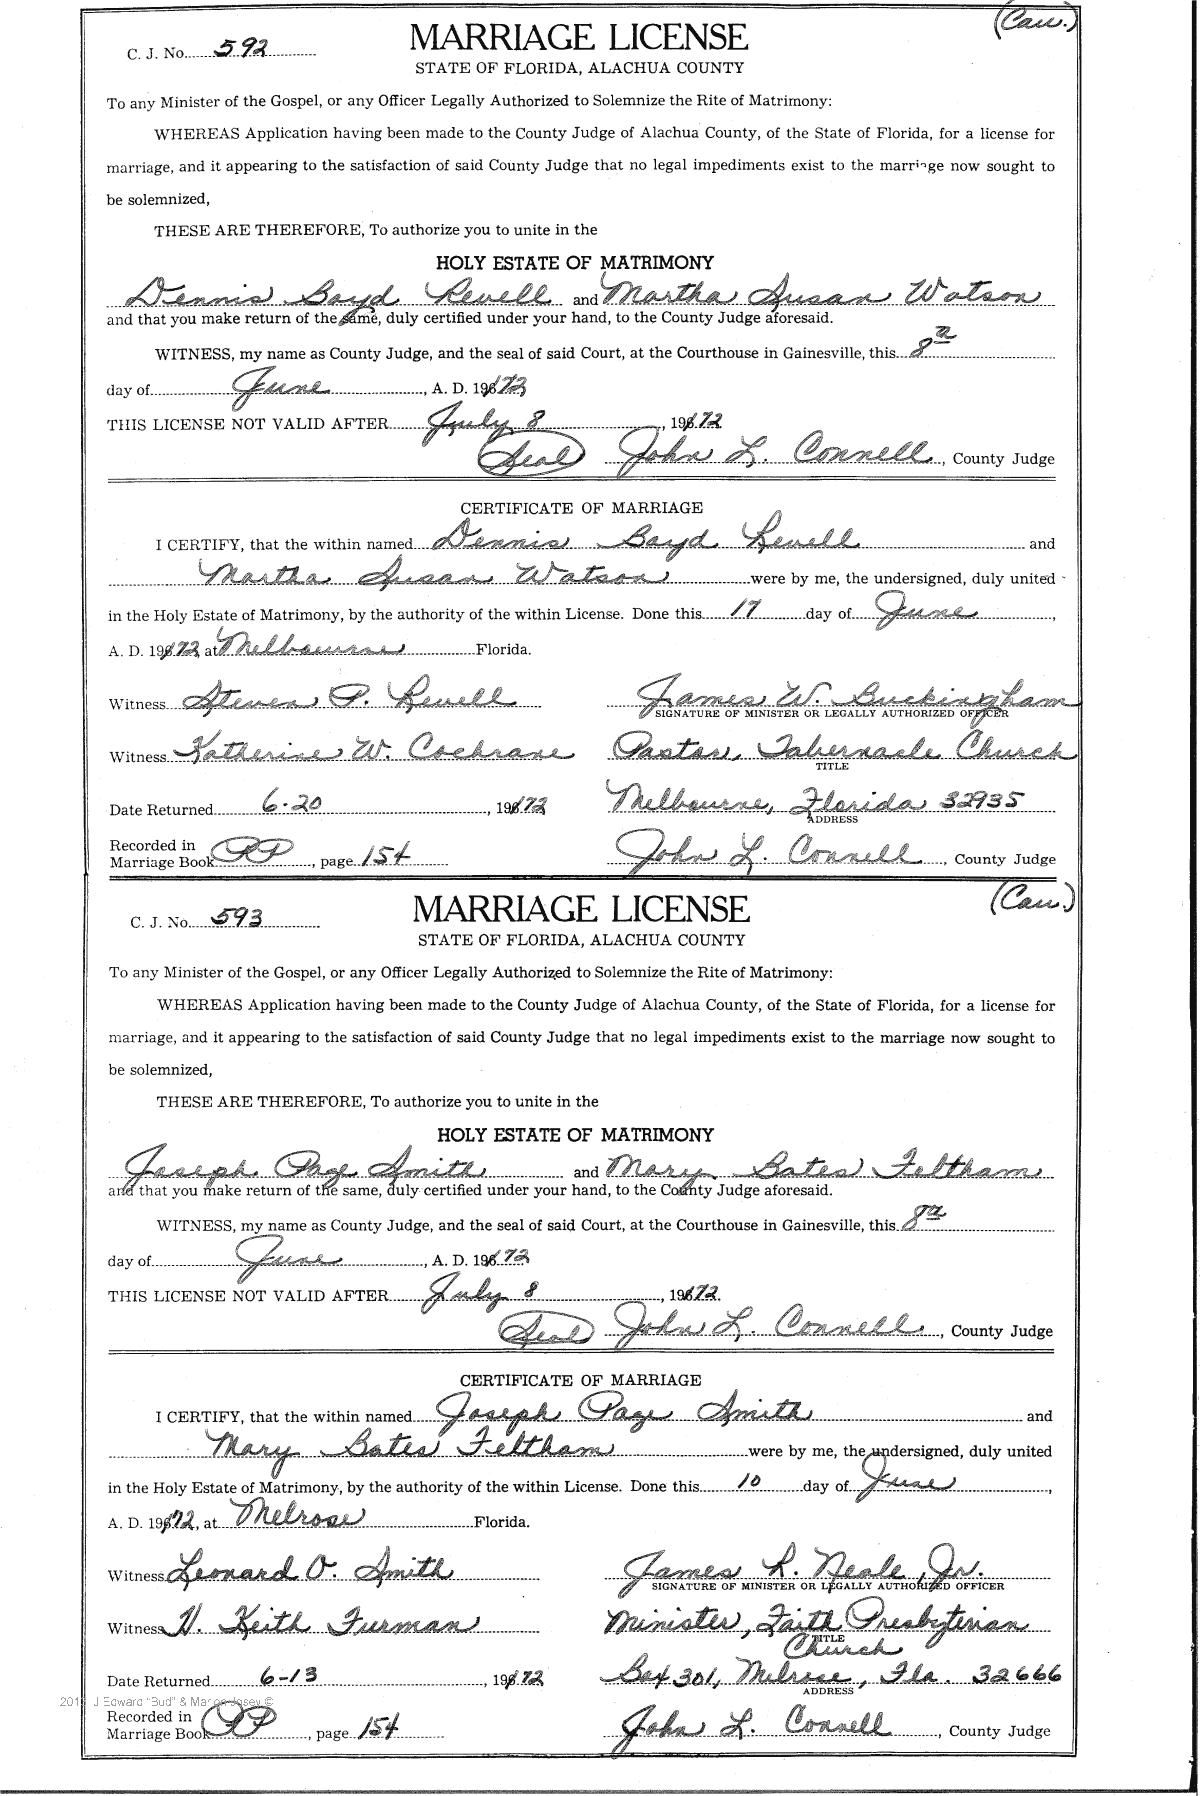 (Cau.)
C. J. No. 592 MARRIAGE LICENSE
STATE OF FLORIDA, ALACHUA COUNTY
To any Minister of the Gospel, or any Officer Legally Authorized to Solemnize the Rite of Matrimony:
WHEREAS Application having been made to the County Judge of Alachua County, of the State of Florida, for a license for
marriage, and it appearing to the satisfaction of said County Judge that no legal impediments exist to the marriage now sought to
be solemnized,
THESE ARE THEREFORE, To authorize you to unite in the
HOLY ESTATE OF MATRIMONY
Dennis Boyd Revell and Martha Susan Watson
and that you make return of the same, duly certified under your hand, to the County Judge aforesaid.
WITNESS, my name as County Judge, and the seal of said Court, at the Courthouse in Gainesville, this 8th
day of June, A. D. 1972
THIS LICENSE NOT VALID AFTER July 8, 1972
(Seal) John L. Connell, County Judge
CERTIFICATE OF MARRIAGE
I CERTIFY, that the within named Dennis Boyd Revell and
Martha Susan Watson were by me, the undersigned, duly united
in the Holy Estate of Matrimony, by the authority of the within License. Done this 17 day of June,
A. D. 1972, at Melbourne Florida.
Witness Steven P. Revell James W. Buckingham
SIGNATURE OF MINISTER OR LEGALLY AUTHORIZED OFFICER
Witness Katherine W. Cochrane Pastor, Tabernacle Church
TITLE
Date Returned 6-20, 1972 Melbourne, Florida 32935
ADDRESS
Recorded in
Marriage Book PP, page 154 John L. Connell, County Judge
(Cau.)
C. J. No. 593 MARRIAGE LICENSE
STATE OF FLORIDA, ALACHUA COUNTY
To any Minister of the Gospel, or any Officer Legally Authorized to Solemnize the Rite of Matrimony:
WHEREAS Application having been made to the County Judge of Alachua County, of the State of Florida, for a license for
marriage, and it appearing to the satisfaction of said County Judge that no legal impediments exist to the marriage now sought to
be solemnized,
THESE ARE THEREFORE, To authorize you to unite in the
HOLY ESTATE OF MATRIMONY
Joseph Page Smith and Mary Bates Feltham
and that you make return of the same, duly certified under your hand, to the County Judge aforesaid.
WITNESS, my name as County Judge, and the seal of said Court, at the Courthouse in Gainesville, this 8th
day of June, A. D. 1972
THIS LICENSE NOT VALID AFTER July 8, 1972.
(Seal) John L. Connell, County Judge
CERTIFICATE OF MARRIAGE
I CERTIFY, that the within named Joseph Page Smith and
Mary Bates Feltham were by me, the undersigned, duly united
in the Holy Estate of Matrimony, by the authority of the within License. Done this 10 day of June,
A. D. 1972, at Melrose Florida.
Witness Leonard O. Smith James R. Neale, Jr.
SIGNATURE OF MINISTER OR LEGALLY AUTHORIZED OFFICER
Witness H. Keith Furman Minister, Faith Presbyterian
TITLE
Church
Date Returned 6-13, 1972 Box 301, Melrose, Fla. 32666
ADDRESS
J Edward "Bud" & Marion Josey ©
Recorded in
Marriage Book PP, page 154 John L. Connell, County Judge